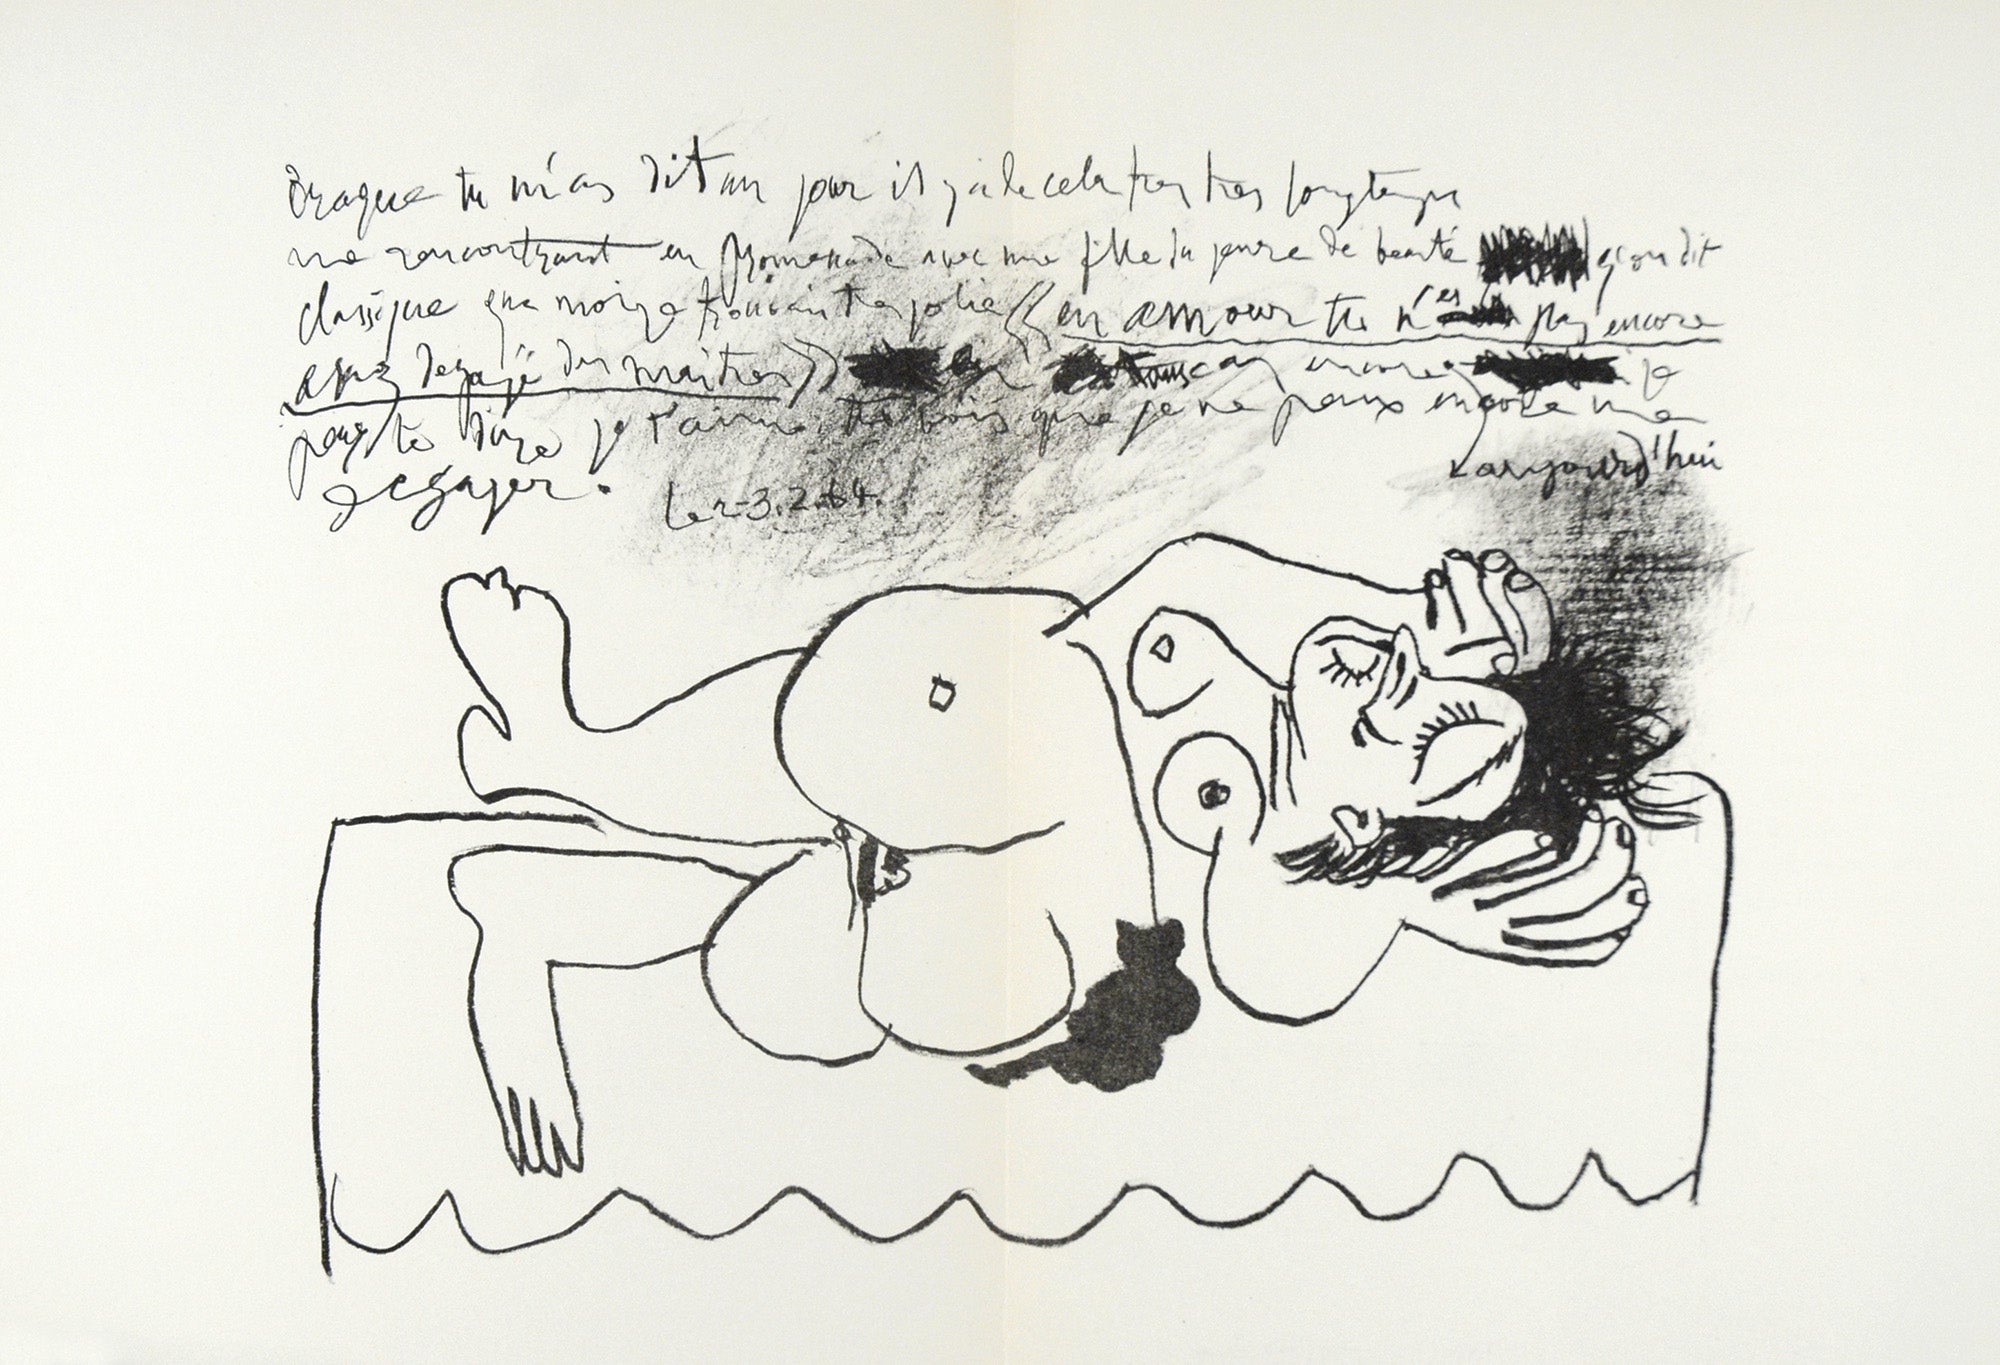 Braque tu m'as dit un jour il y a de cela tres tres longtemps
me rencontrant en promenade avec une fille du genre de beauté qu'on dit
classique que moi je trouvais tres jolie << en amour tu n'es pas encore
assez degagé des maitres >> en tous cas encore je
peux te dire je t'aime tu vois que je ne peux encore me
aujourd'hui
degager.
Le 2-3.2.64.